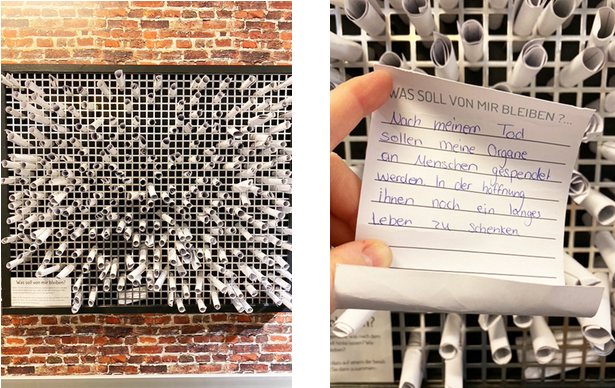 Was soll von mir bleiben?
WAS SOLL VON MIR BLEIBEN ?...
Nach meinem Tod
sollen meine Organe
an Menschen gespendet
werden In der hoffnung
ihnen noch ein langes
Leben zu schenken